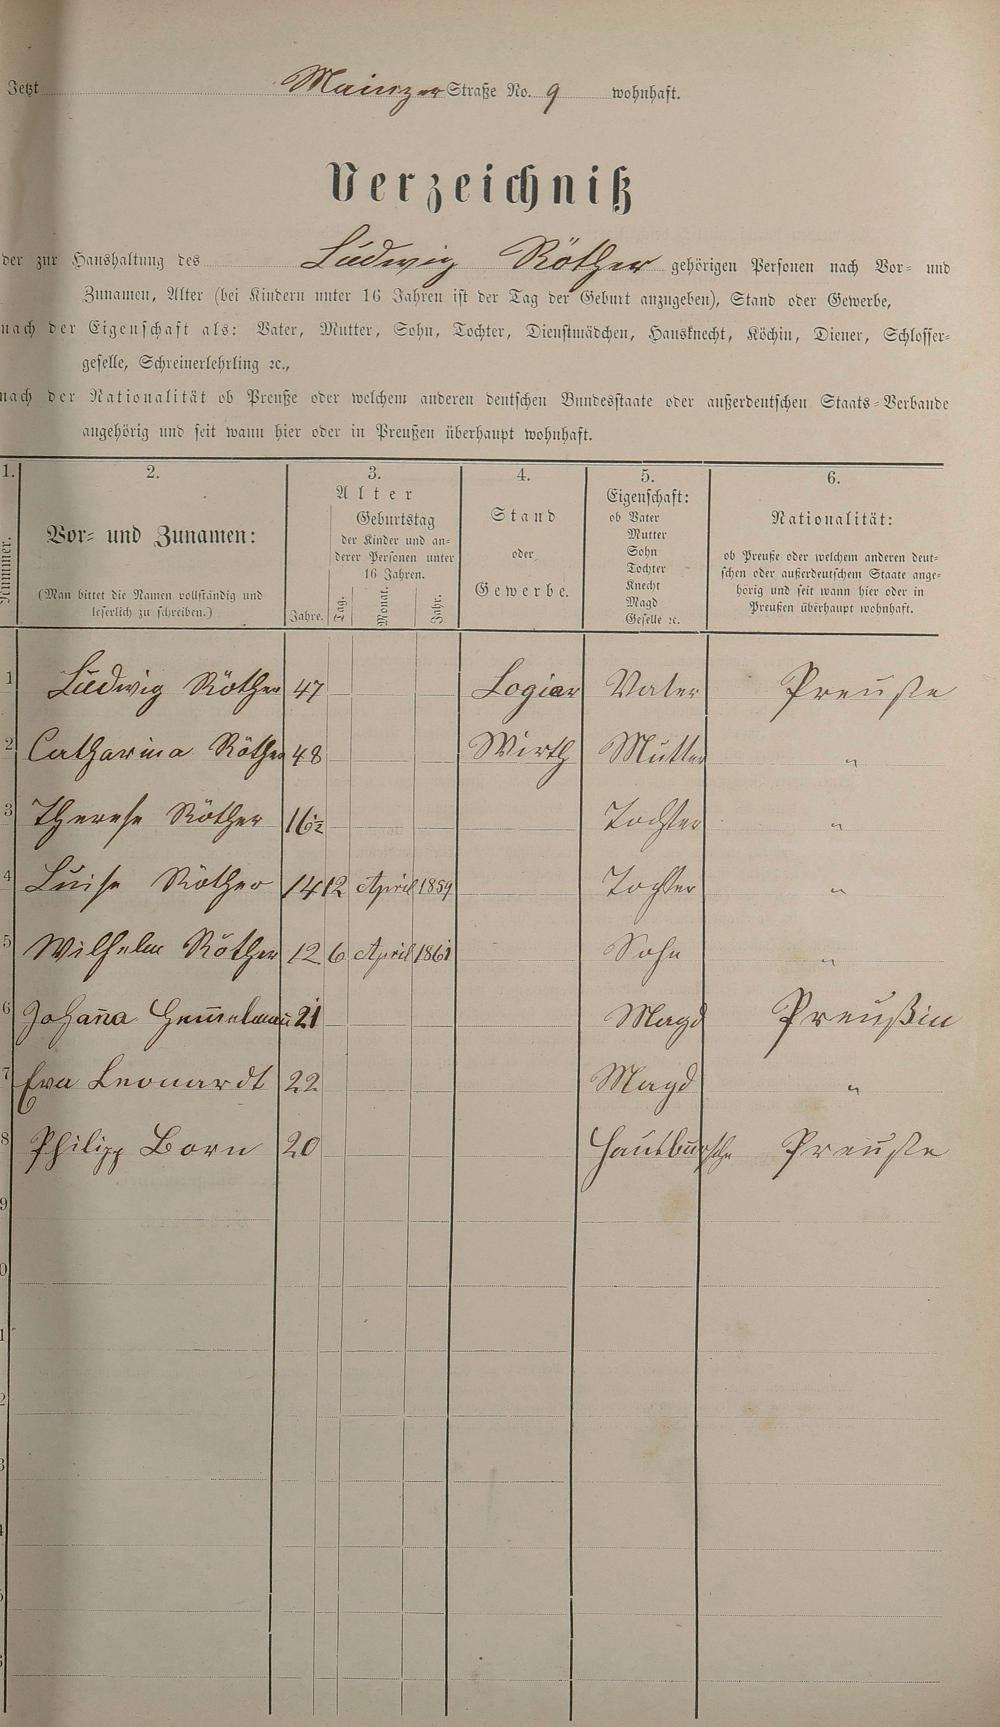 Jetzt Mainzer Straße No. 9 wohnhaft.
Verzeichniß
der zur Haushaltung des Ludwig Röther gehörigen Personen nach Vor- und
Zunamen, Alter (bei Kindern unter 16 Jahren ist der Tag der Geburt anzugeben), Stand oder Gewerbe,
nach der Eigenschaft als: Vater, Mutter, Sohn, Tochter, Dienstmädchen, Hausknecht, Köchin, Diener, Schlosser-
geselle, Schreinerlehrling ꝛc.,
nach der Nationalität ob Preuße oder welchem anderen deutschen Bundesstaate oder außerdeutschen Staats-Verbande
angehörig und seit wann hier oder in Preußen überhaupt wohnhaft.
1. 2. 3. 4. 5. 6.
Nummer.
Vor- und Zunamen:
(Man bittet die Namen vollständig und
leserlich zu schreiben.)
Alter
Geburtstag
der Kinder und an-
derer Personen unter
16 Jahren.
Jahre. Tag. Monat. Jahr.
Stand
oder
Gewerbe.
Eigenschaft:
ob Vater
Mutter
Sohn
Tochter
Knecht
Magd
Geselle ꝛc.
Nationalität:
ob Preuße oder welchem anderen deut-
schen oder außerdeutschem Staate ange-
hörig und seit wann hier oder in
Preußen überhaupt wohnhaft.
1 Ludwig Röther 47 Logier Vater Preuße
2 Catharina Röther 48 Wirth Mutter "
3 Therese Röther 16½ Tochter "
4 Luise Röther 14 12 April 1859 Tochter "
5 Wilhelm Röther 12 6 April 1861 Sohn "
6 Johan̄a Hem̄elman̄ 21 Magd Preußin
7 Eva Leonardt 22 Magd "
8 Philipp Born 20 Hausbursche Preuße
9
0
1
2
3
4
5
6